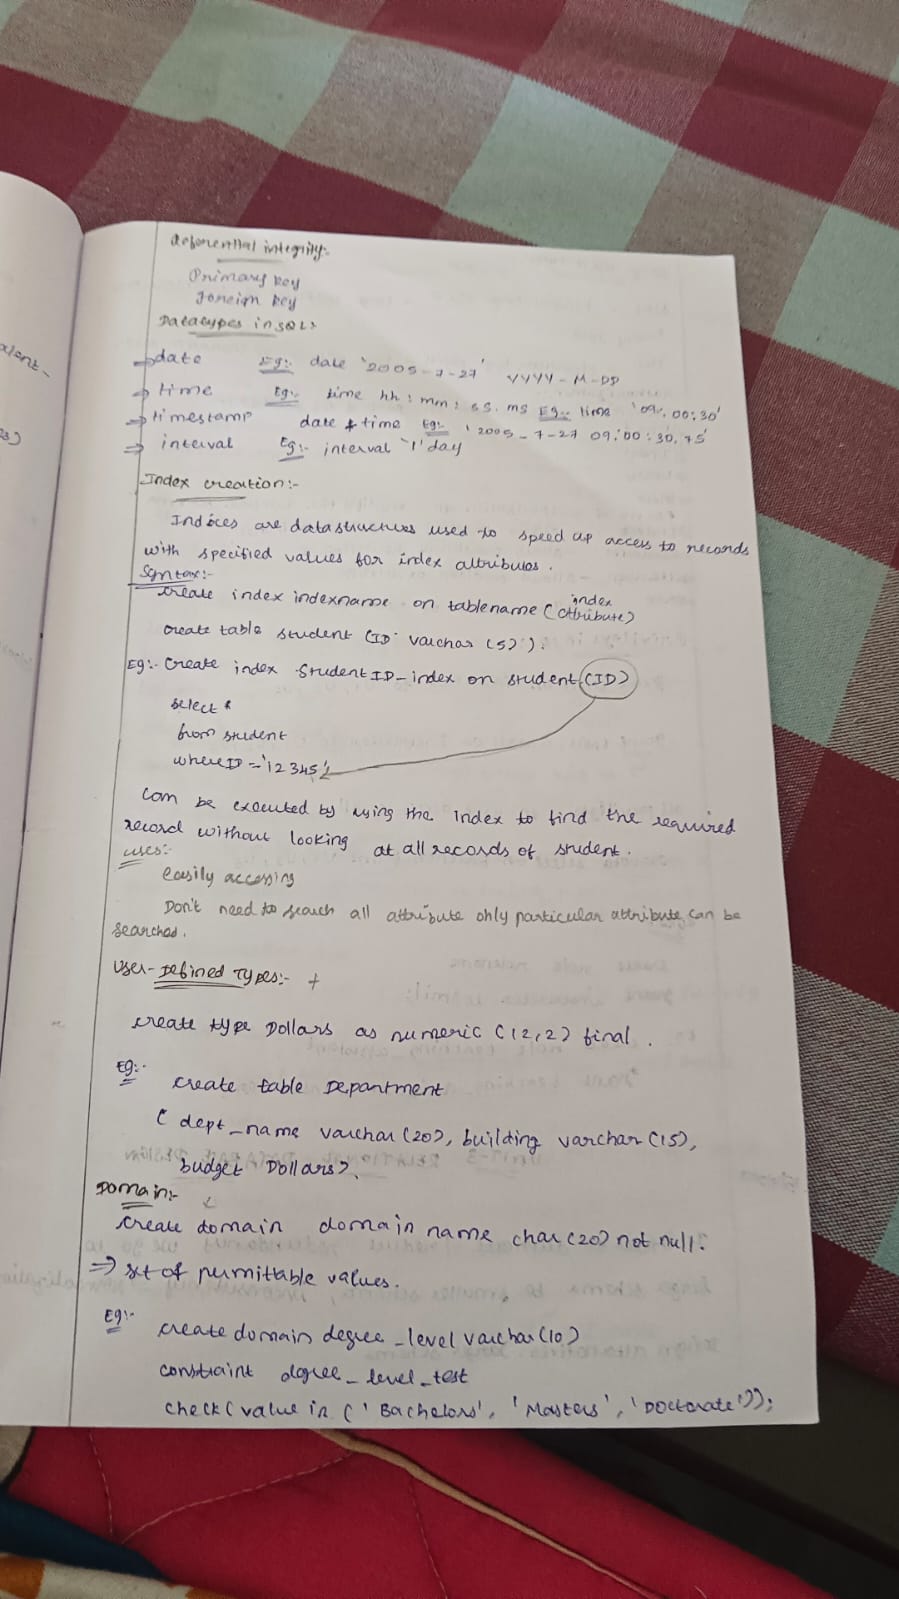 Referential integrity:-
Primary key
Foreign key
Datatypes in SQL:
⇒ date Eg:- date '2005-7-27' YYYY-M-DD
⇒ time Eg:- time hh:mm:ss.ms Eg:- time '09:00:30'
⇒ timestamp date & time Eg:- '2005-7-27 09:00:30.75'
⇒ interval Eg:- interval '1' day
Index creation:-
Indices are datastructures used to speed up access to records
with specified values for index attributes.
Syntax:-
create index indexname on tablename (index attribute)
create table student (ID varchar (5));
Eg:- Create index StudentID-index on student (ID)
select *
from student
where ID = '12345'
Can be executed by using the Index to find the required
record without looking at all records of student.
uses:-
Easily accessing
Don't need to search all attribute only particular attribute can be
searched.
User-Defined Types:- +
create type Dollars as numeric (12,2) final.
Eg:-
create table Department
( dept_name varchar (20), building varchar (15),
budget Dollars).
Domain:-
create domain domain name char (20) not null.
⇒ set of permittable values.
Eg:-
create domain degree_level varchar (10)
constraint degree_level_test
check (value in ('Bachelors', 'Masters', 'Doctorate'));